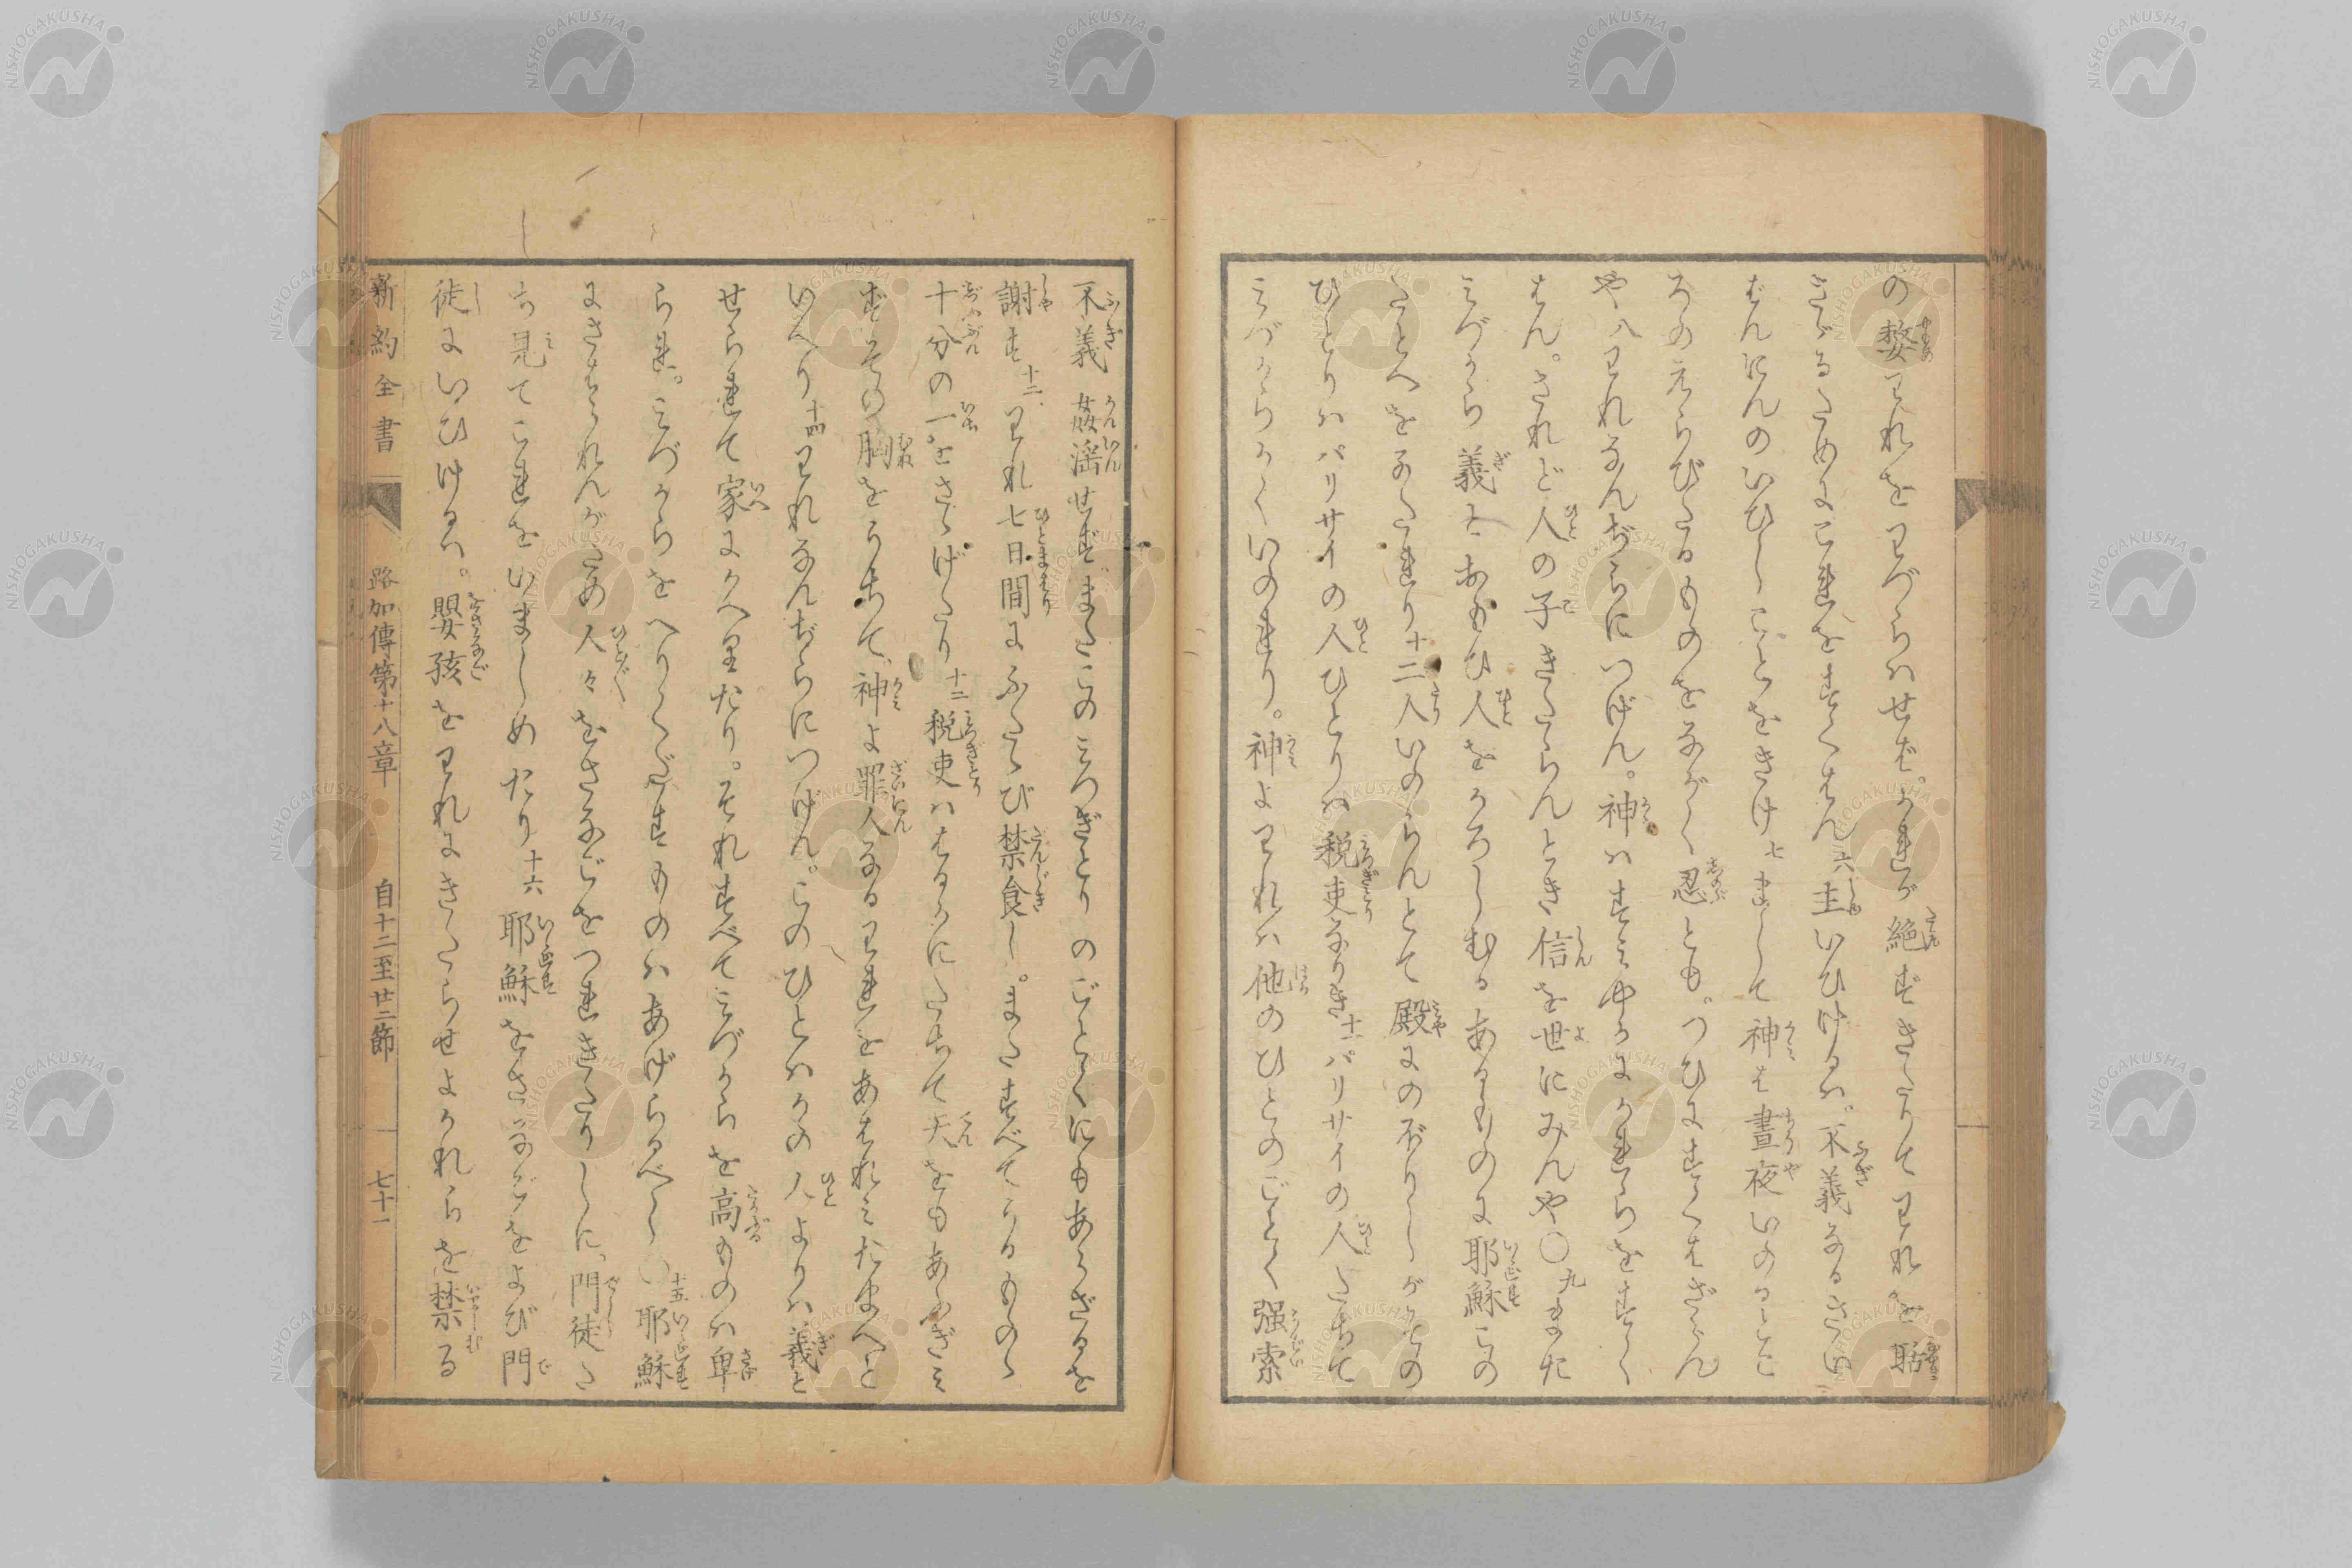 の嫠われをわづらハせば。かれが絶ずきたりてわれを聒
さゞるためにこれをすくはん六主いひけるハ。不義なるさい
ばんにんのいひしことをきけ七まして神は晝夜いのるとこ
ろのえらびたるものをながく忍とも。つひにすくはざらん
や八われなんぢらにつげん。神ハすみやかにかれらをすく
はん。されど人の子きたらんとき信を世にみんや〇九また
みづから義とおもひ人をかろしむるあるものに耶穌この
たとへをかたれり十二人いのらんとて殿にのぼりしがその
ひとりハパリサイの人ひとりハ税吏なりき十一パリサイの人たちて
みづからかくいのれり。神よわれハ他のひとのごとく强索
不義姦淫せずまたこのみつぎとりのごとくにもあらざるを
謝す十二われ七日間にふたゝび禁食し。またすべてうるものゝ
十分の一をさゝげたり十三税吏ハはるかにたちて天をもあふぎみ
ずその胸をうちて、神よ罪人なるわれをあはれみたまへと
いへり十四われなんぢらにつげん。このひとハかの人よりハ義と
せられて家にかへりたり。それすべてみづからを高ものハ卑
られ。みづからをへりくだすものハあげらるべし〇十五耶穌
にさはられんがため人々をさなごをつれきたりしに。門徒た
ち見てこれをいましめたり十六耶穌をさなごをよび門
徒にいひけるハ。嬰孩をわれにきたらせよかれらを禁る
新約全書 路加傳第十八章 自十二至廿二節 七十一
NISHOGAKUSHA